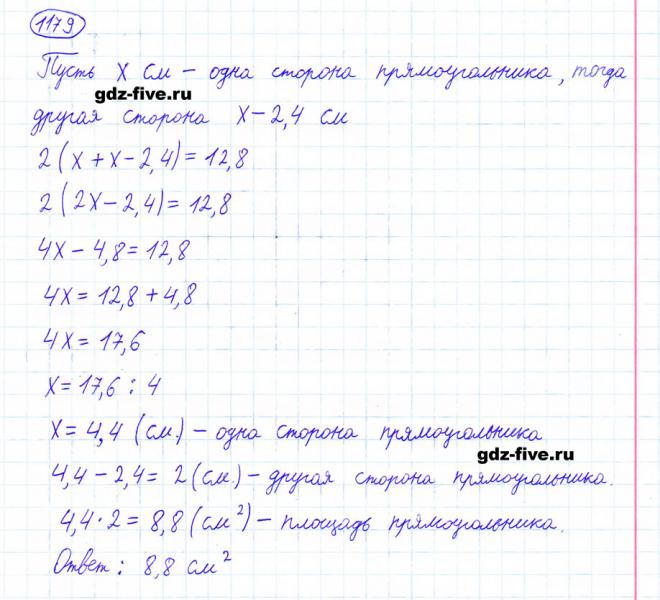 1179
Пусть x см – одна сторона прямоугольника, тогда
gdz-five.ru
другая сторона x – 2,4 см
2(x + x – 2,4) = 12,8
2(2x – 2,4) = 12,8
4x – 4,8 = 12,8
4x = 12,8 + 4,8
4x = 17,6
x = 17,6 : 4
x = 4,4 (см.) – одна сторона прямоугольника
gdz-five.ru
4,4 – 2,4 = 2 (см.) – другая сторона прямоугольника.
4,4 · 2 = 8,8 (см²) – площадь прямоугольника.
Ответ: 8,8 см²